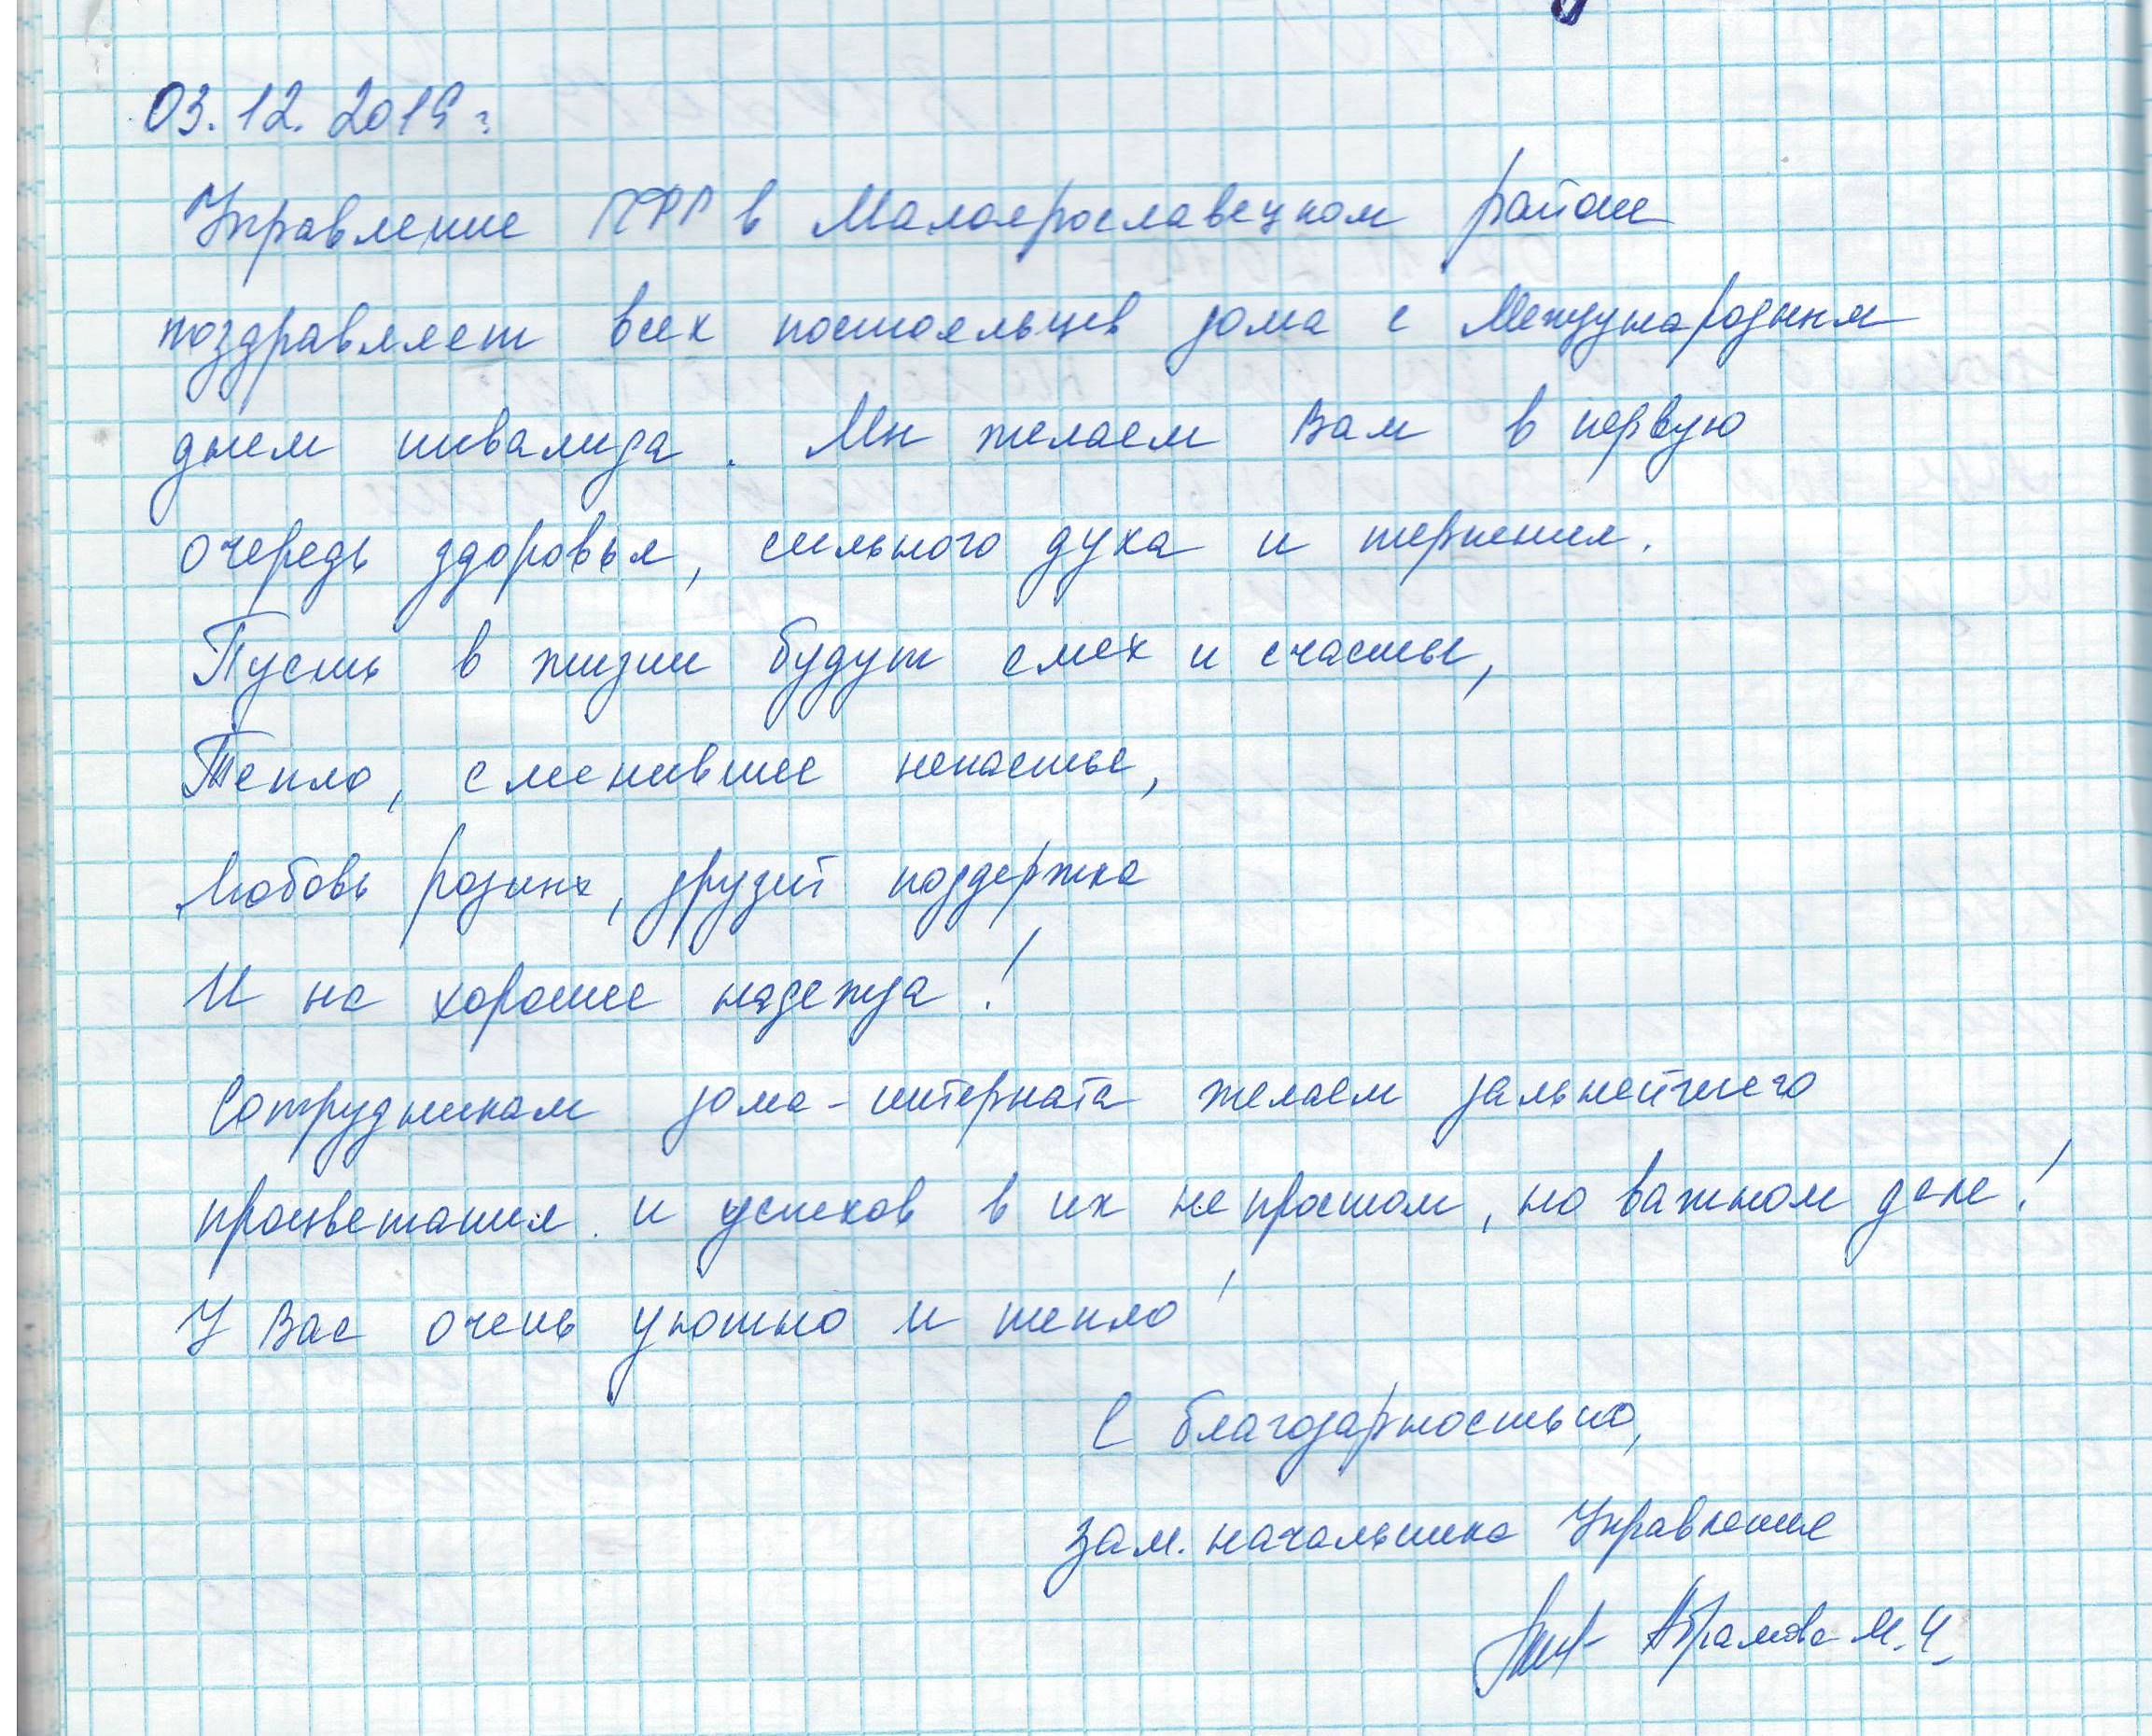 03.12.2019г.
Управление ПФР в Малоярославецком районе
поздравляет всех постояльцев дома с Международным
днем инвалида. Мы желаем Вам в первую
очередь здоровья, сильного духа и терпения.
Пусть в жизни будут смех и счастье,
Тепло, сменившее ненастье,
Любовь родных, друзей поддержка
И на хорошее надежда!
Сотрудникам дома-интерната желаем дальнейшего
процветания и успехов в их непростом, но важном деле!
У Вас очень уютно и тепло!
С благодарностью,
зам. начальника Управления
Абрамова М.И.